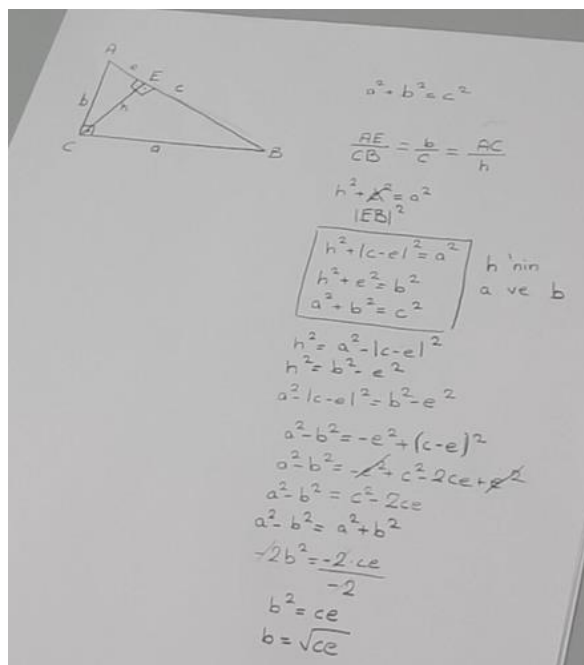 A
e
E
c
b
h
C
a
B
a² + b² = c²
AE/CB = b/c = AC/h
h² + = a²
|EB|²
h² + |c-e|² = a²
h² + e² = b²
a² + b² = c²
h'nin
a ve b
h² = a² - |c-e|²
h² = b² - e²
a² - |c-e|² = b² - e²
a² - b² = -e² + (c-e)²
a² - b² = -e² + c² - 2ce + e²
a² - b² = c² - 2ce
a² - b² = a² + b²
-2b² = -2·ce/-2
b² = ce
b = √ce